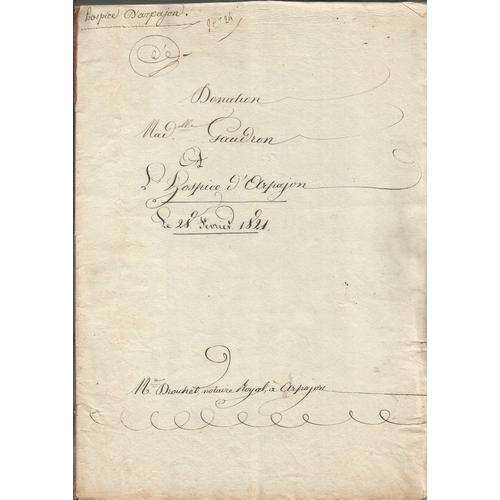 hospice D'arpajon.
Donation
Mad.elle Gaudron
A
L'hospice d'Arpajon
Le 28. février 1821.
Me Drouhet, notaire Royal, à Arpajon